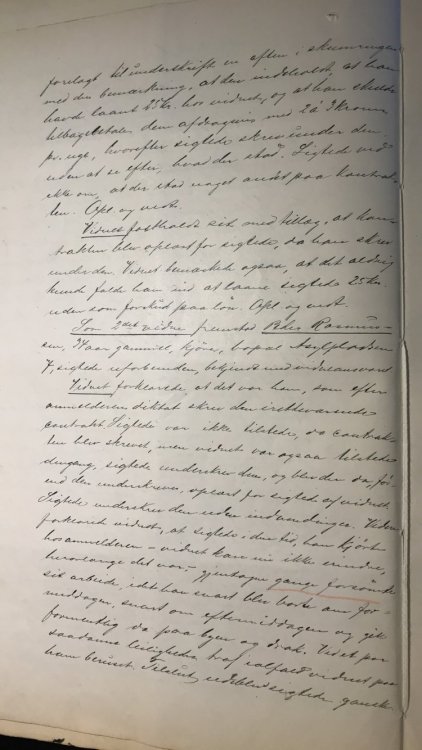 forelagt til underskrift en aften i skumringen
med den bemærkning, at den indeholdt, at han
havde laant 25 kr. hos vidnet, og at han skulde
tilbagebetale dem afdragsvis med 2 à 3 kroner
pr. uge, hvorefter siglede skrev under den
uden at se efter, hvad der stod. Siglede ved
ikke om, at der stod noget andet paa kontrak-
ten. Opl. og vedt.
Vidnet fastholdt sit med tillæg, at kon-
trakten blev oplæst for siglede, da han skrev
under den. Vidnet bemærket ogsaa, at det aldrig
kunde falde ham ind at laane siglede 25 kr.
uden som forskud paa løn. Opl. og vedt.
Som 2det vidne fremstod Peder Rasmus-
sen, aar gammel, kjører, bopæl Asylpladsen
7, siglede uforbunden, bekjendt med vidneansvaret
Vidnet forklarede, at det var ham, som efter
anmelderens diktat skrev den iretteværende
contrakt. Siglede var ikke tilstede, da contrak-
ten blev skrevet, men vidnet var ogsaa tilstede
dengang, siglede underskrev den, og blev der da, før-
end den underskreves, oplæst for siglede af vidnet.
Siglede underskrev den uden indvendinger. Videre
forklaret vidnet, at siglede i den tid, han kjørte
hos anmelderen – vidnet kan nu ikke erindre,
hvorlænge det var – gjentagne gange forsømte
sit arbeide, idet han snart blev borte om for-
middagen, snart om eftermiddagen og gik
formentlig da paa byen og drak. Vidnet par
saadanne leiligheder traf ialfald vidnet paa
ham beruset. Tilslut udeblev siglede ganske